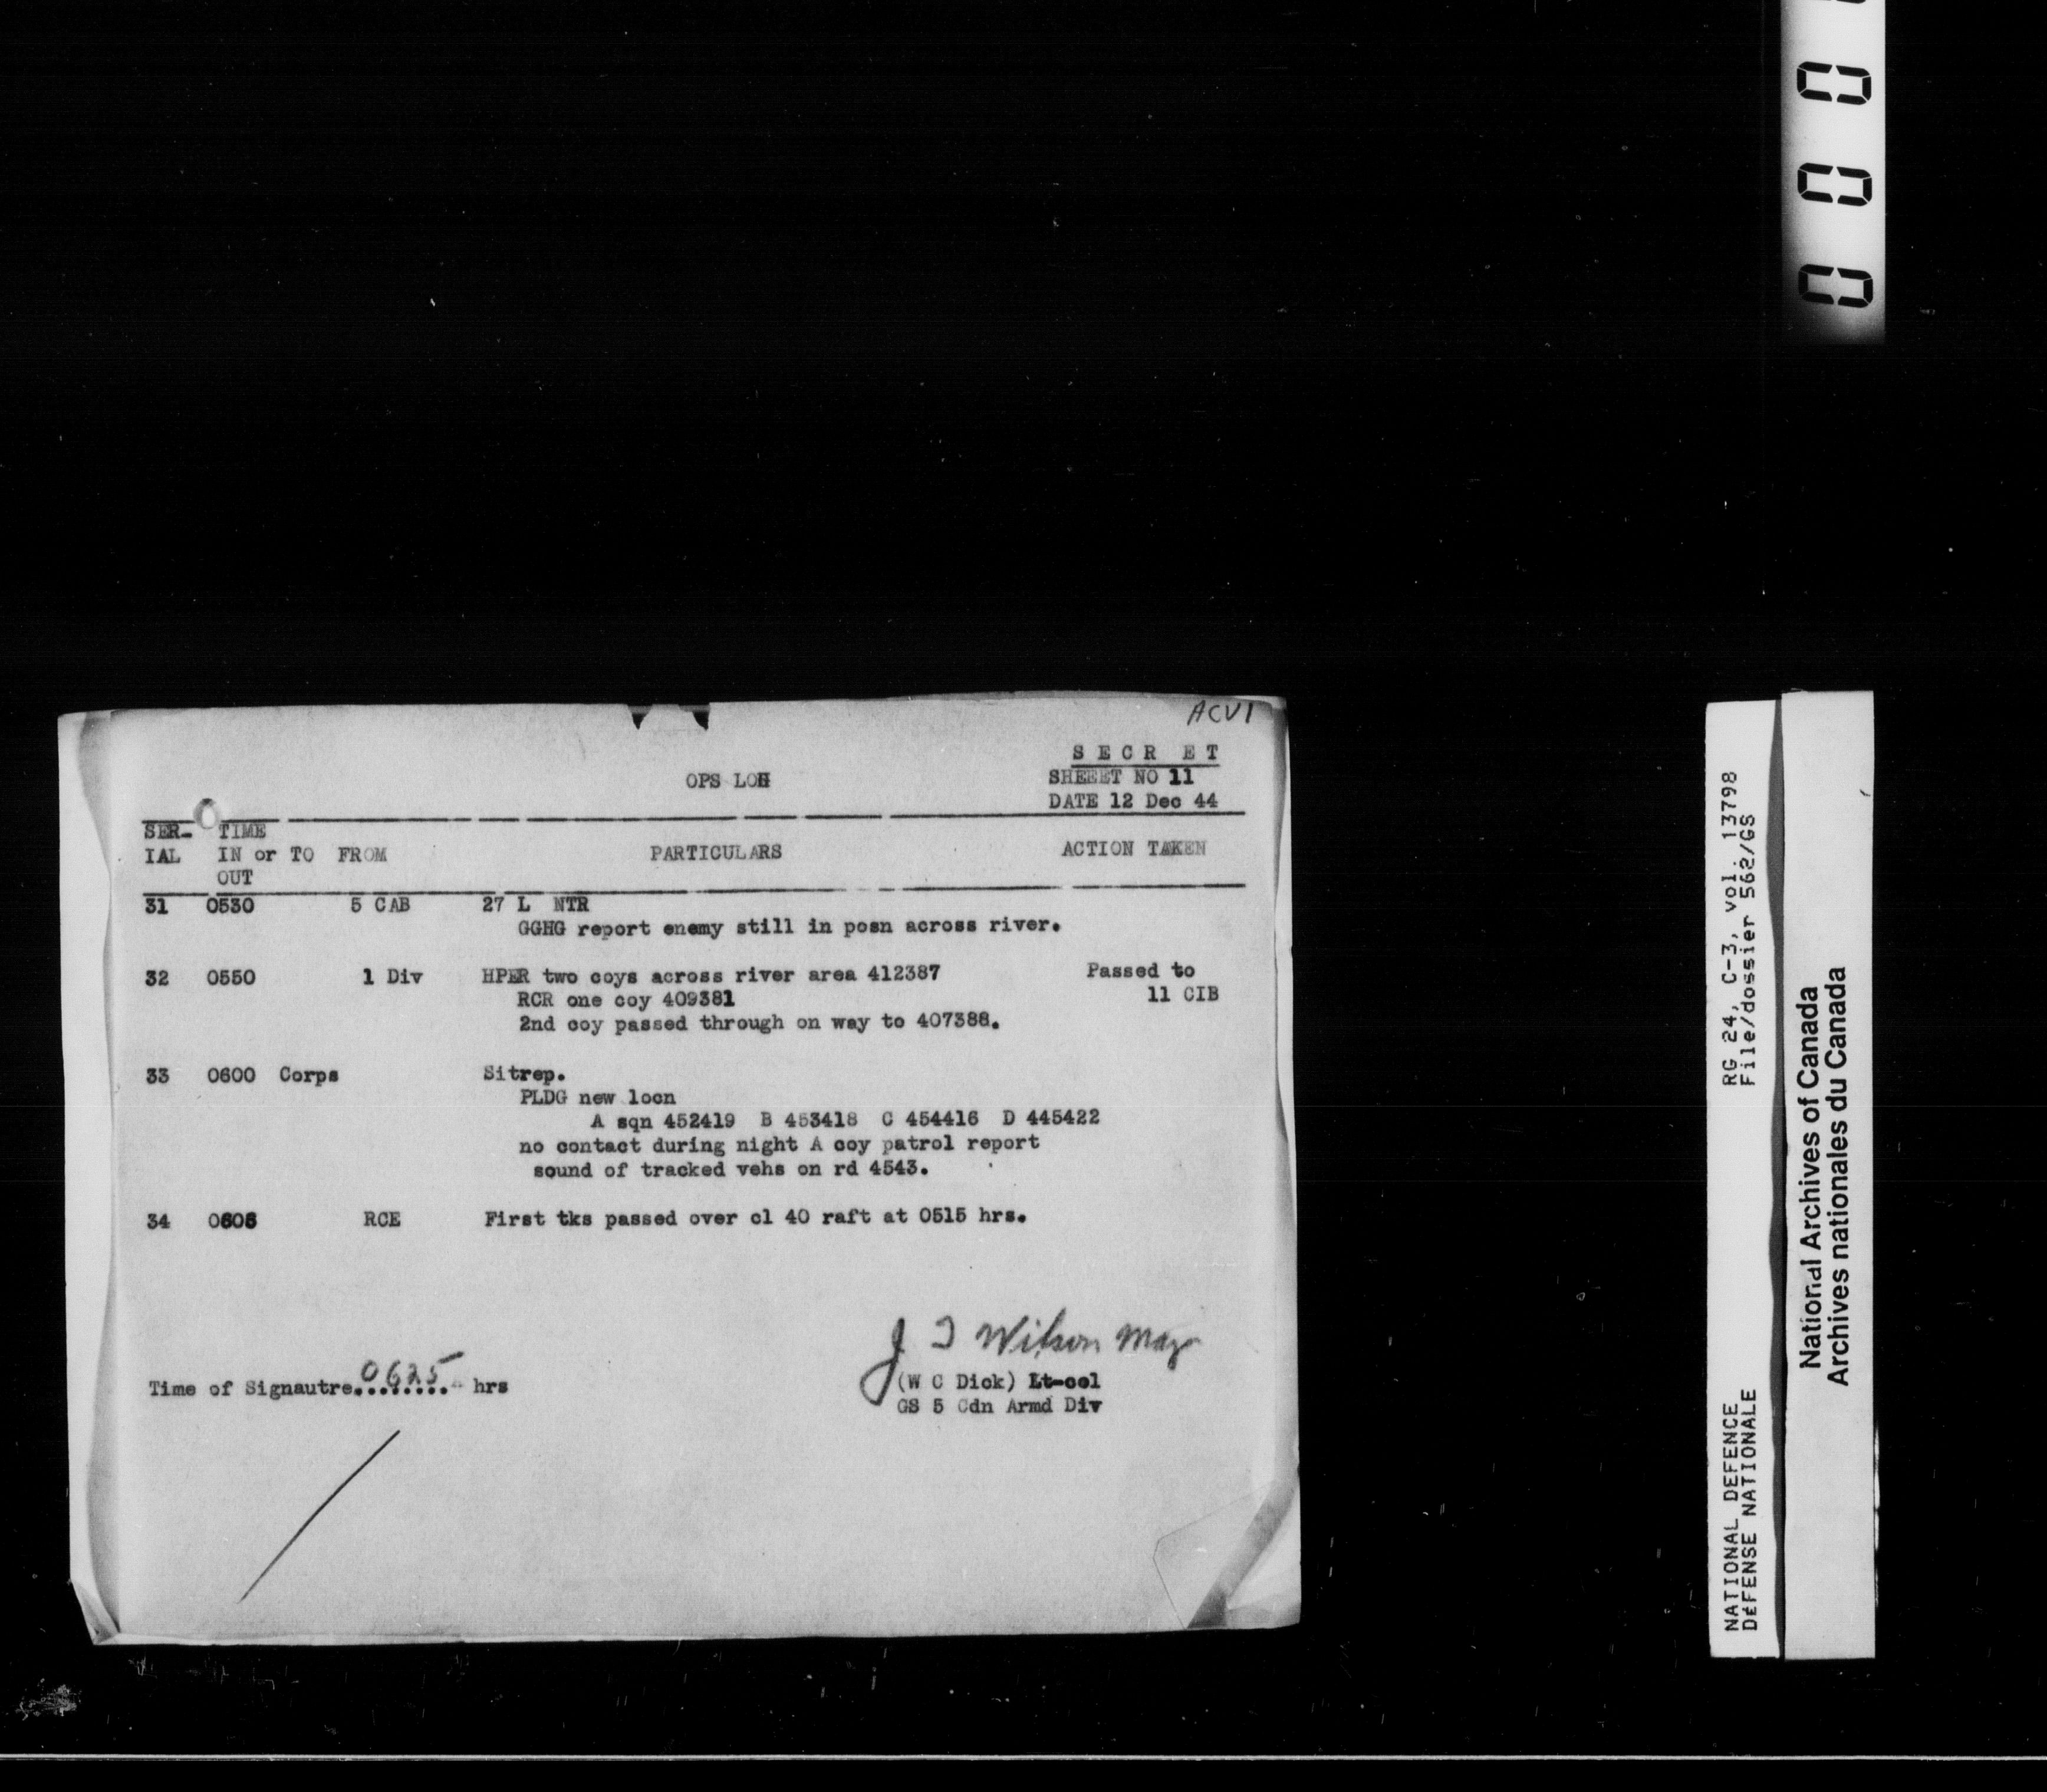 ACV1
S E C R E T
OPS LOG
SHEEET NO 11
DATE 12 Dec 44
SER- TIME
IAL IN or TO FROM PARTICULARS ACTION TAKEN
OUT
31 0530 5 CAB 27 L NTR
GGHG report enemy still in posn across river.
32 0550 1 Div HPER two coys across river area 412387 Passed to
RCR one coy 409381 11 CIB
2nd coy passed through on way to 407388.
33 0600 Corps Sitrep.
PLDG new locn
A sqn 452419 B 453418 C 454416 D 445422
no contact during night A coy patrol report
sound of tracked vehs on rd 4543.
34 0606 RCE First tks passed over cl 40 raft at 0515 hrs.
J I Wilson Maj
Time of Signautre 0625 hrs
(W C Dick) Lt-col
GS 5 Cdn Armd Div
000
RG 24, C-3, vol. 13798
File/dossier 562/GS
NATIONAL DEFENCE
DÉFENSE NATIONALE
National Archives of Canada
Archives nationales du Canada